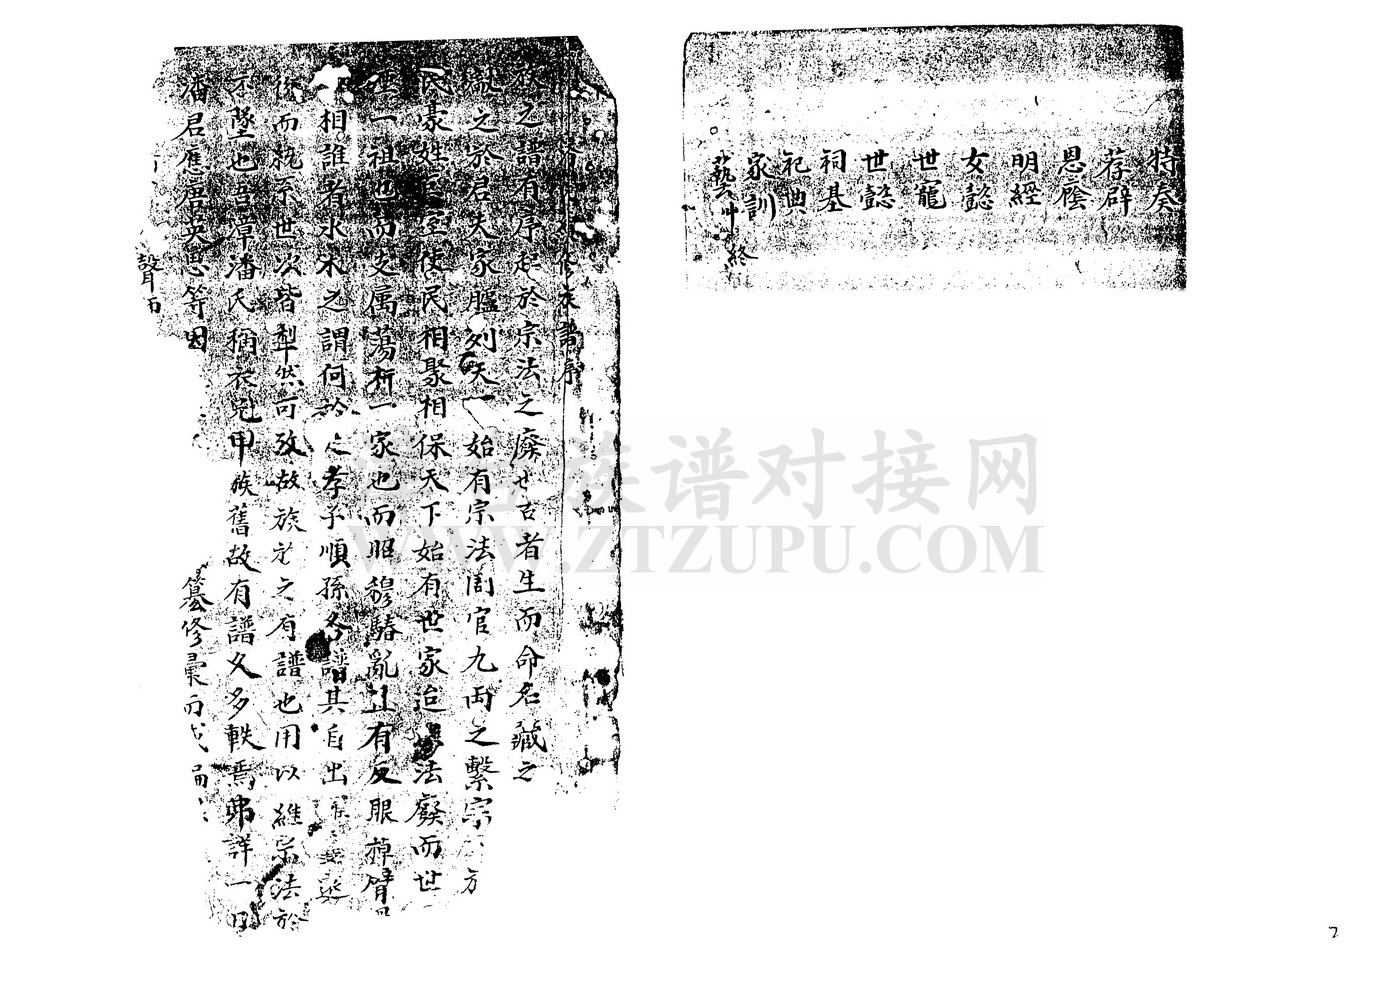 特奏
荐辟
恩廕
明經
女懿
世寵
世懿
祠基
祀典
家訓
藝 終
修族譜序
族之譜有序起於宗法之廢也古者生而命名藏之
獻之於君夫家臚列天 始有宗法周官九兩之繫宗 族
民豪姓巨室使民相聚相保天下始有世家迨 法廢而世
一祖也而支属蕩析一家也而昭穆 亂且有反眼掉臂
相誰者水木之謂何於是孝子順孫各譜其自出
後而統系世次皆犁然可攷故族 之有譜也用以維宗法於
不墜也吾漳潘氏稱衣冠甲族舊故有譜久多軼焉弗詳一日
潘君應唐英思等因 纂修彙而成
聲
族谱对接网
WWW.ZTZUPU.COM